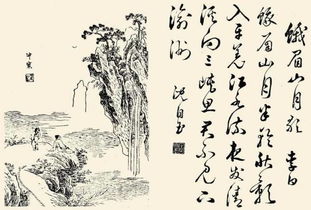 峨眉山月歌 李白
峨眉山月半輪秋影
入平羌江水流夜發清
溪向三峽思君不見下
渝州